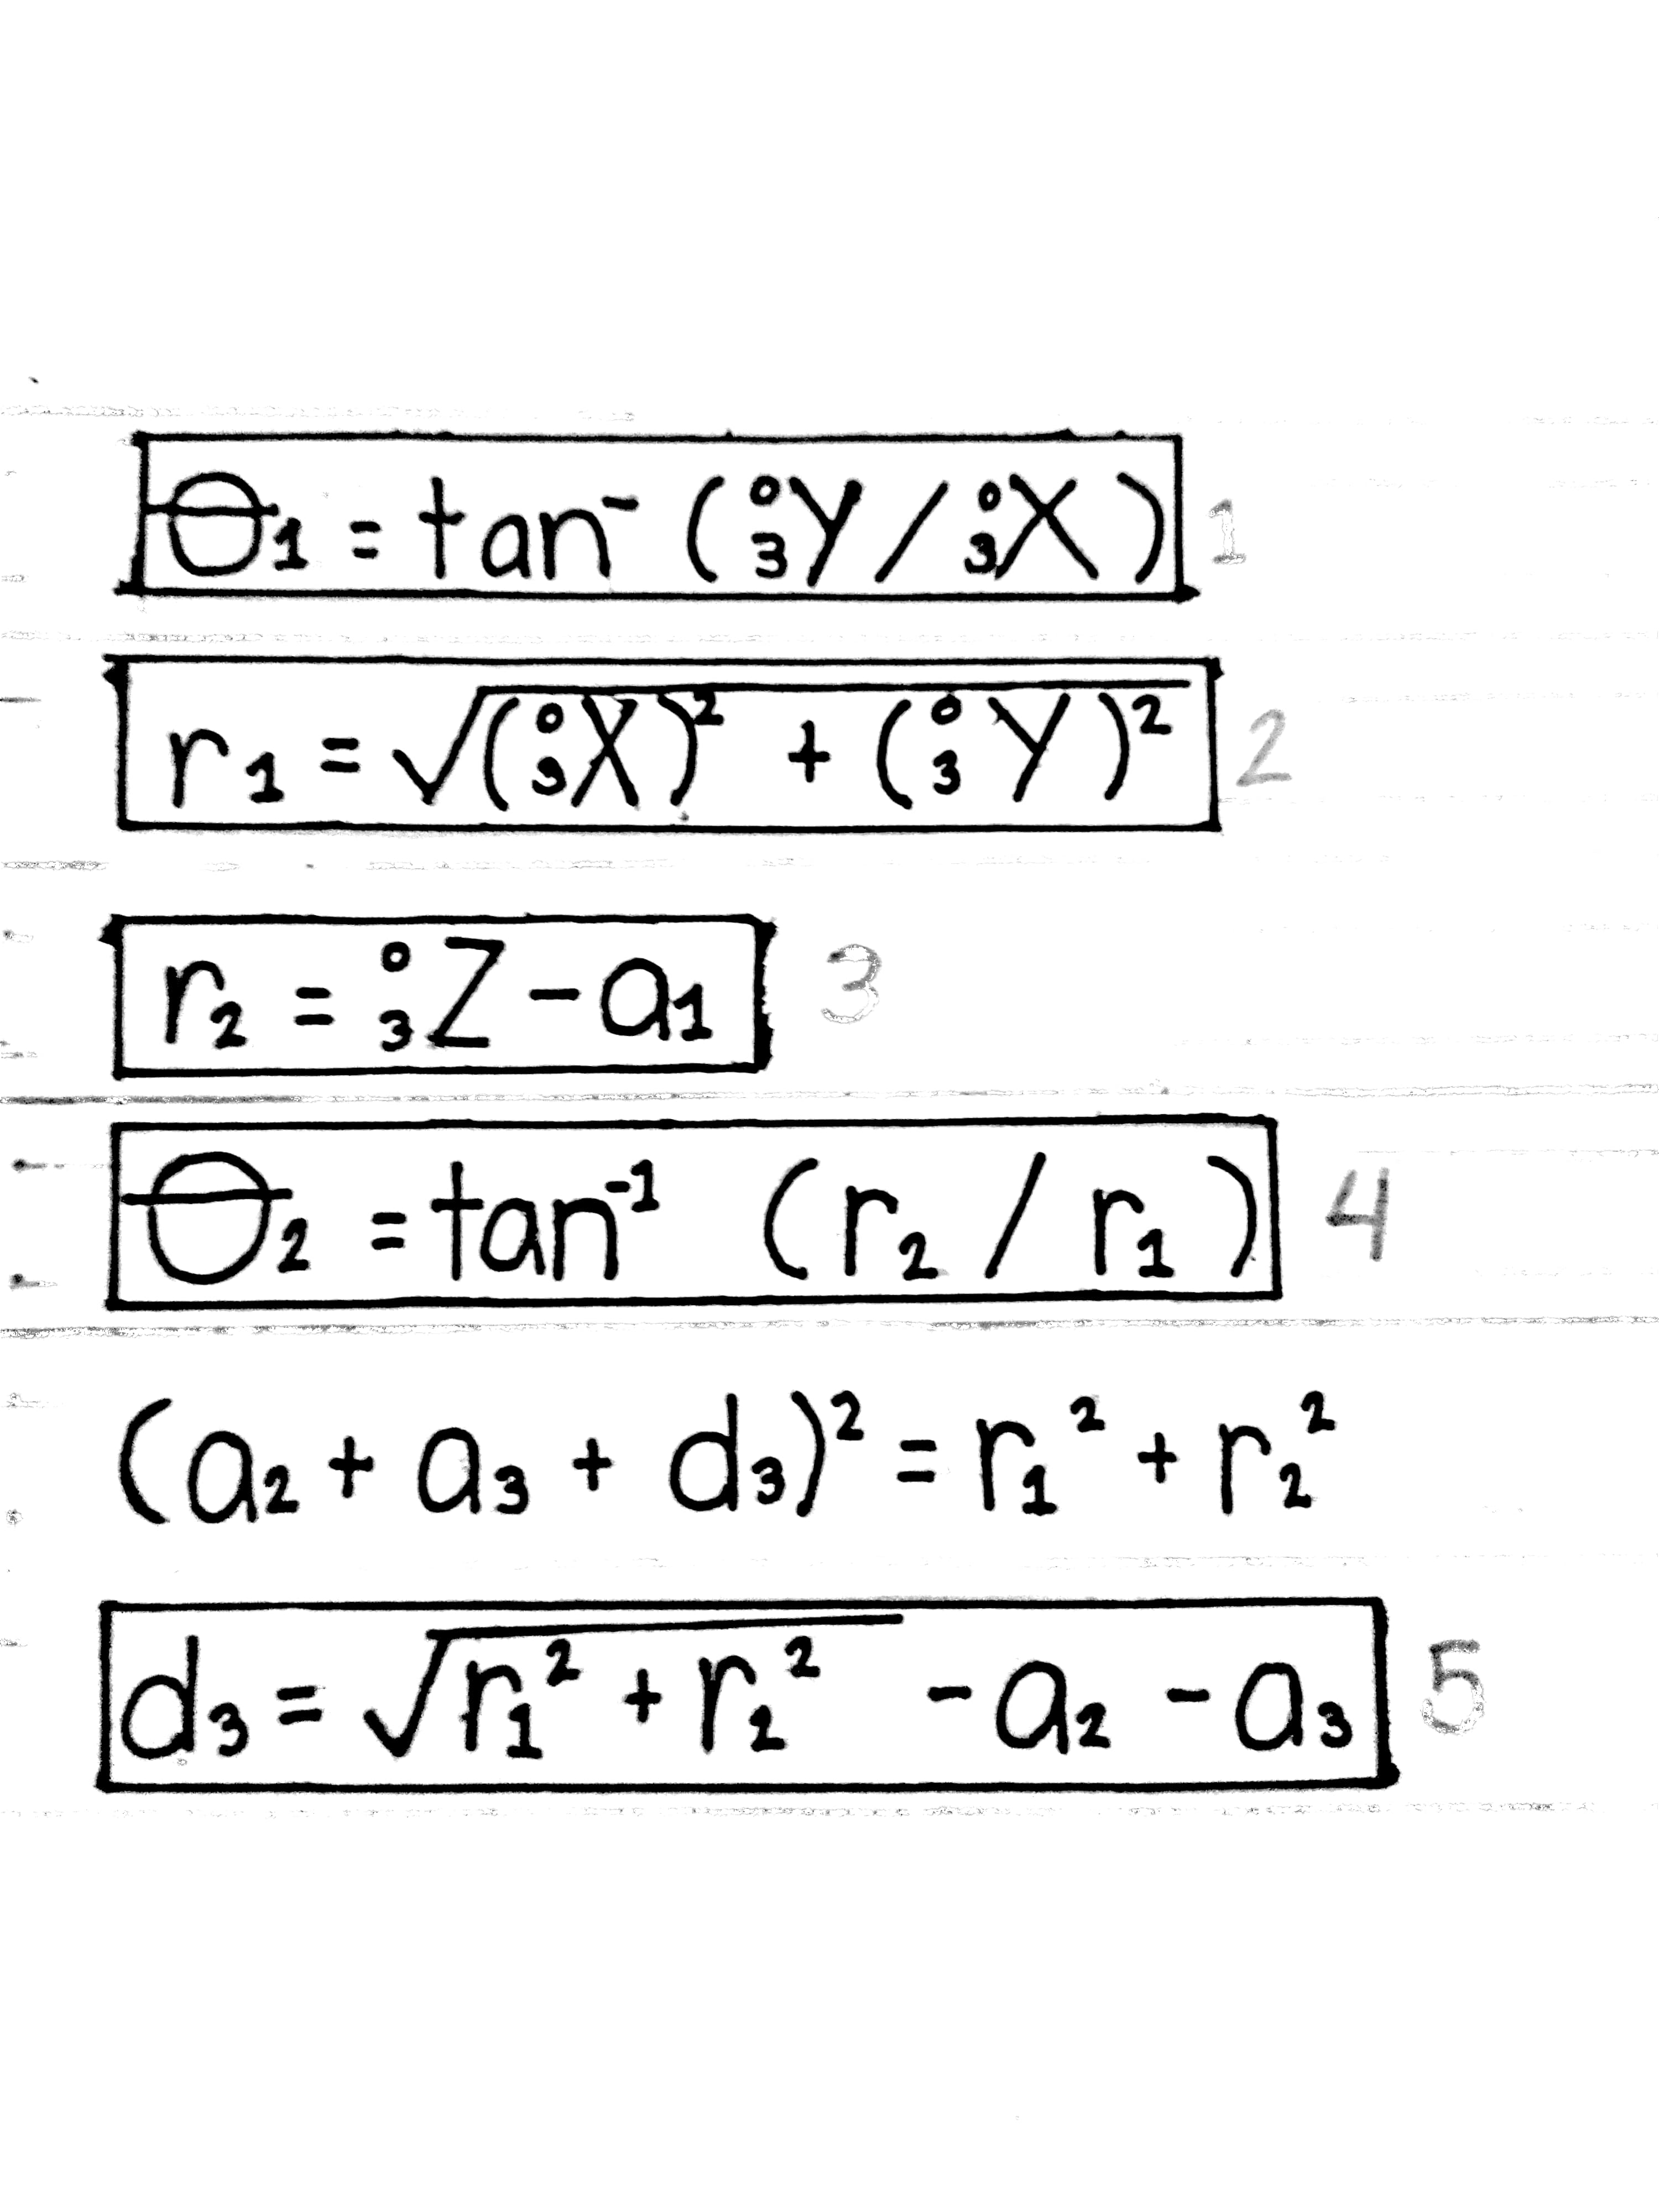 θ₁ = tan⁻ (⁰₃Y / ⁰₃X) 1
r₁ = √(⁰₃X)² + (⁰₃Y)² 2
r₂ = ⁰₃Z - a₁ 3
θ₂ = tan⁻¹ (r₂ / r₁) 4
(a₂ + a₃ + d₃)² = r₁² + r₂²
d₃ = √r₁² + r₂² - a₂ - a₃ 5